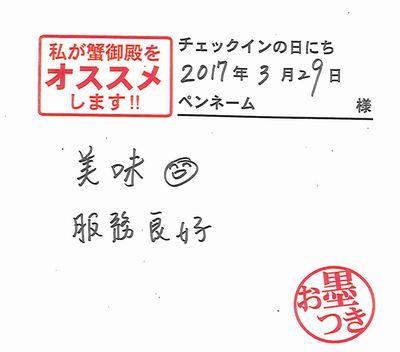 私が蟹御殿を
オススメ
します!!
チェックインの日にち
2017年3月29日
ペンネーム 様
美味
服務良好
お墨
つき